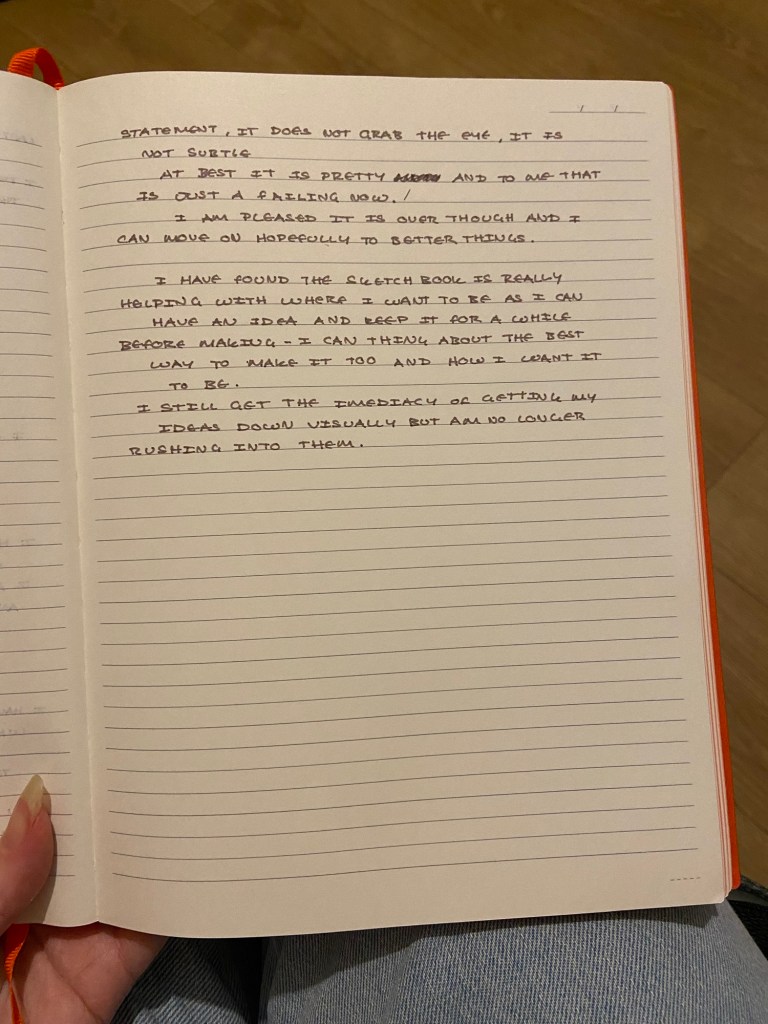 STATEMENT, IT DOES NOT GRAB THE EYE, IT IS
NOT SUBTLE
AT BEST IT IS PRETTY AND TO ME THAT
IS JUST A FAILING NOW. /
I AM PLEASED IT IS OVER THOUGH AND I
CAN MOVE ON HOPEFULLY TO BETTER THINGS.
I HAVE FOUND THE SKETCH BOOK IS REALLY
HELPING WITH WHERE I WANT TO BE AS I CAN
HAVE AN IDEA AND KEEP IT FOR A WHILE
BEFORE MAKING - I CAN THING ABOUT THE BEST
WAY TO MAKE IT TOO AND HOW I WANT IT
TO BE.
I STILL GET THE IMEDIACY OF GETTING MY
IDEAS DOWN VISUALLY BUT AM NO LONGER
RUSHING INTO THEM.